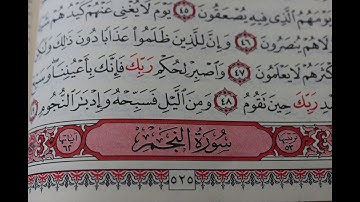 يَوْمَهُمُ الَّذِي فِيهِ يُصْعَقُونَ ٤٥ يَوْمَ لَا يُغْنِي عَنْهُمْ كَيْدُهُمْ شَيْ
لَا هُمْ يُنْصَرُونَ ٤٦ وَإِنَّ لِلَّذِينَ ظَلَمُوا عَذَابًا دُونَ ذَٰلِكَ وَلَٰكِ
كْثَرَهُمْ لَا يَعْلَمُونَ ٤٧ وَاصْبِرْ لِحُكْمِ رَبِّكَ فَإِنَّكَ بِأَعْيُنِنَا وَسَ
دِ رَبِّكَ حِينَ تَقُومُ ٤٨ وَمِنَ اللَّيْلِ فَسَبِّحْهُ وَإِدْبَارَ النُّجُومِ
سُورَةُ النَّجْمِ
٥٢٥